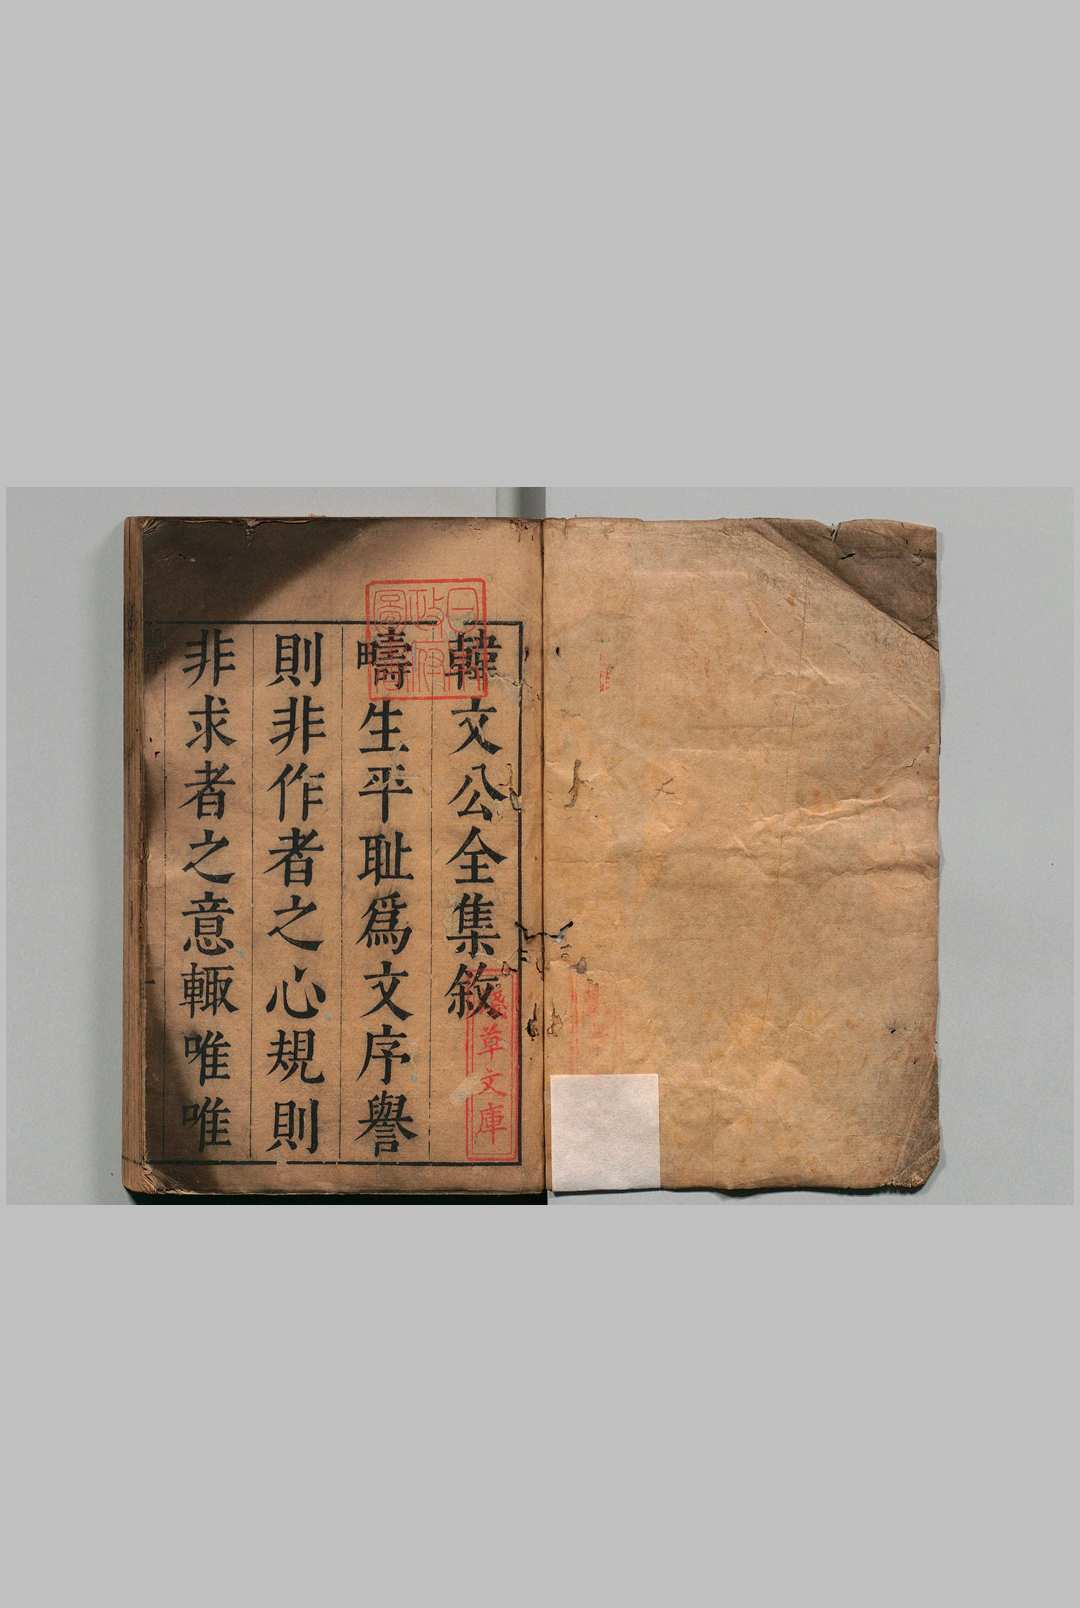 韓文公全集敘
疇生平耻爲文序譽
則非作者之心規則
非求者之意輙唯唯
日 政 圖
草文庫